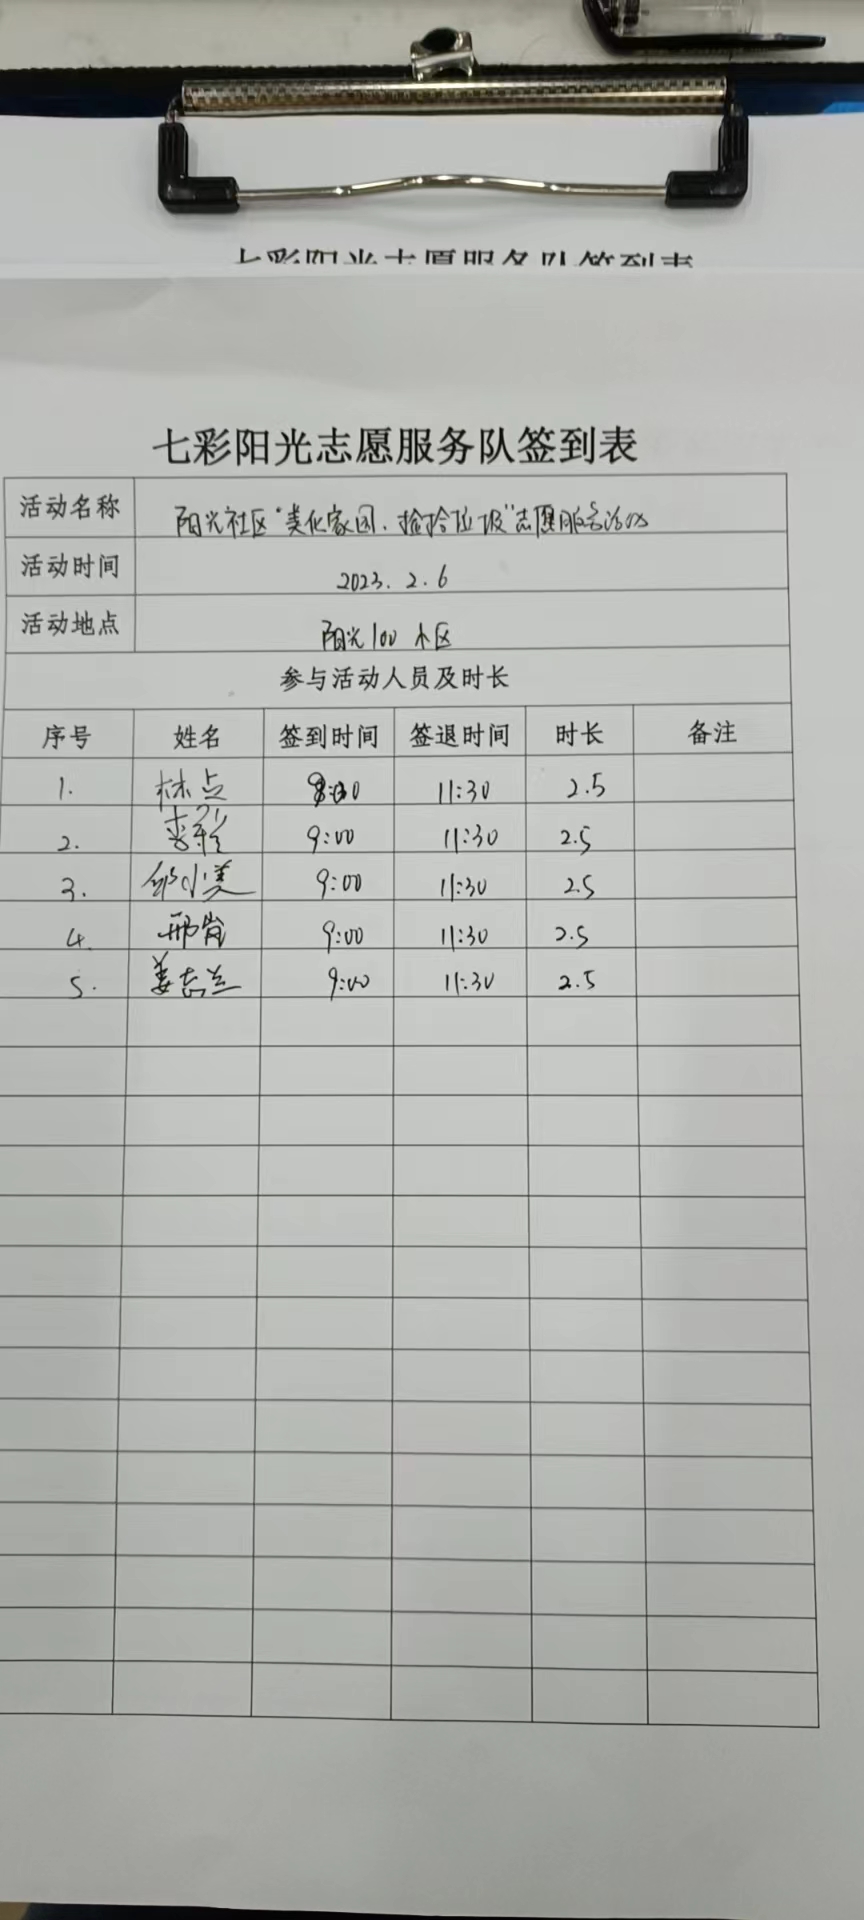 七彩阳光志愿服务队签到表
七彩阳光志愿服务队签到表
活动名称 阳光社区"美化家园、捡拾垃圾"志愿服务活动
活动时间 2023.2.6
活动地点 阳光100小区
参与活动人员及时长
序号 姓名 签到时间 签退时间 时长 备注
1. 林点 9:00 11:30 2.5
2. 李 9:00 11:30 2.5
3. 邹小美 9:00 11:30 2.5
4. 邢岩 9:00 11:30 2.5
5. 姜志兰 9:00 11:30 2.5